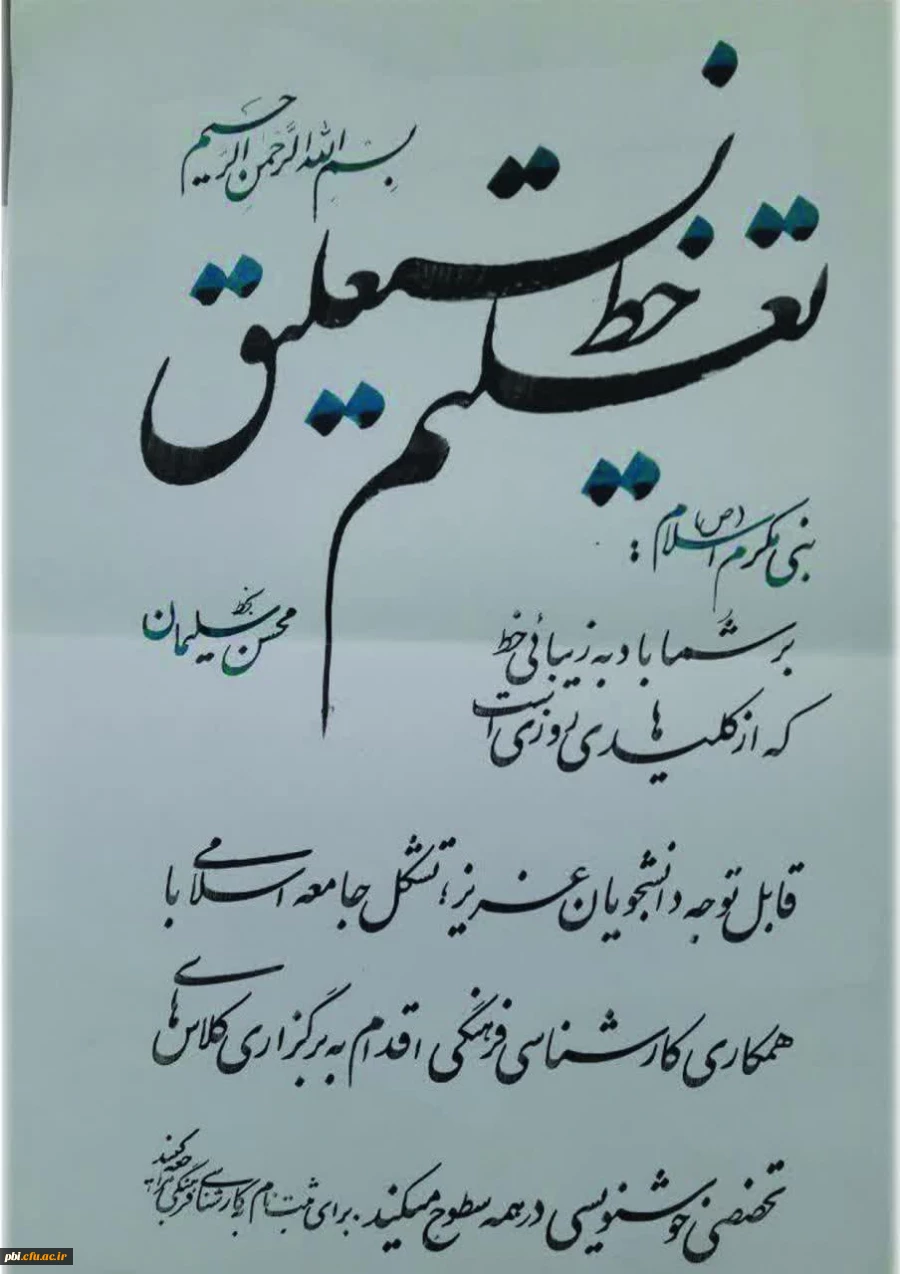 بِسْمِ اللّٰهِ الرَّحْمٰنِ الرَّحیم
تعلیم خط نستعلیق
نبی مکرم اسلام (ص) :
بر شما باد به زیبائی خط
که از کلیدهای روزی است
بخط
محسن سلیمان
قابل توجه دانشجویان عزیز؛ تشکل جامعه اسلامی با
همکاری کارشناسی فرهنگی اقدام به برگزاری کلاس های
تخصصی خوشنویسی در همه سطوح میکند. برای ثبت نام به کارشناسی فرهنگی مراجعه کنید
pbi.cfu.ac.ir